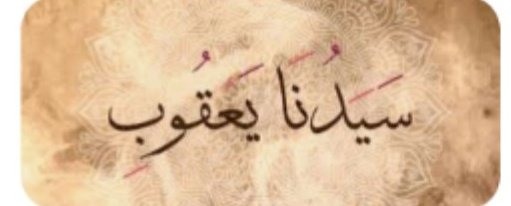 سَيَدُنَا يَعَقُوبِ